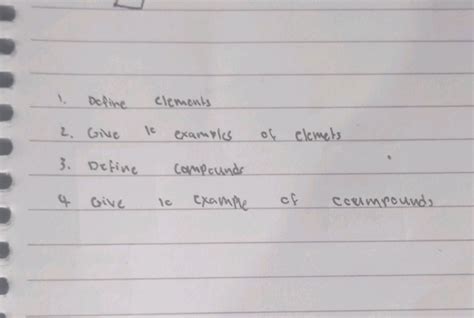 1. Define elements
2. Give 10 examples of elemets
3. Define compounds
4 Give 10 example of coumpounds